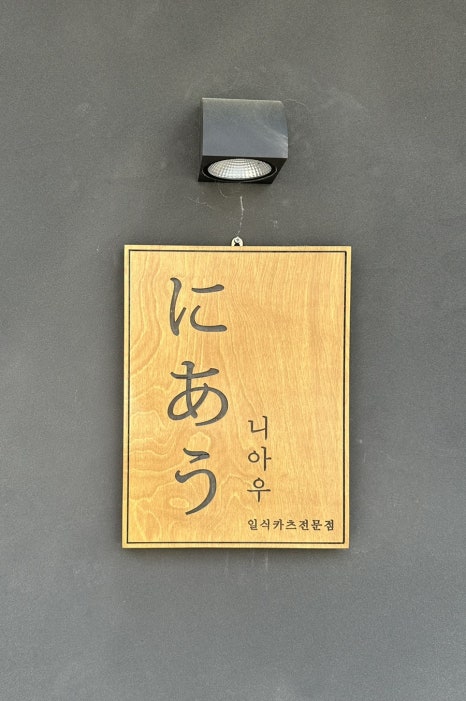 にあう
니아우
일식카츠전문점